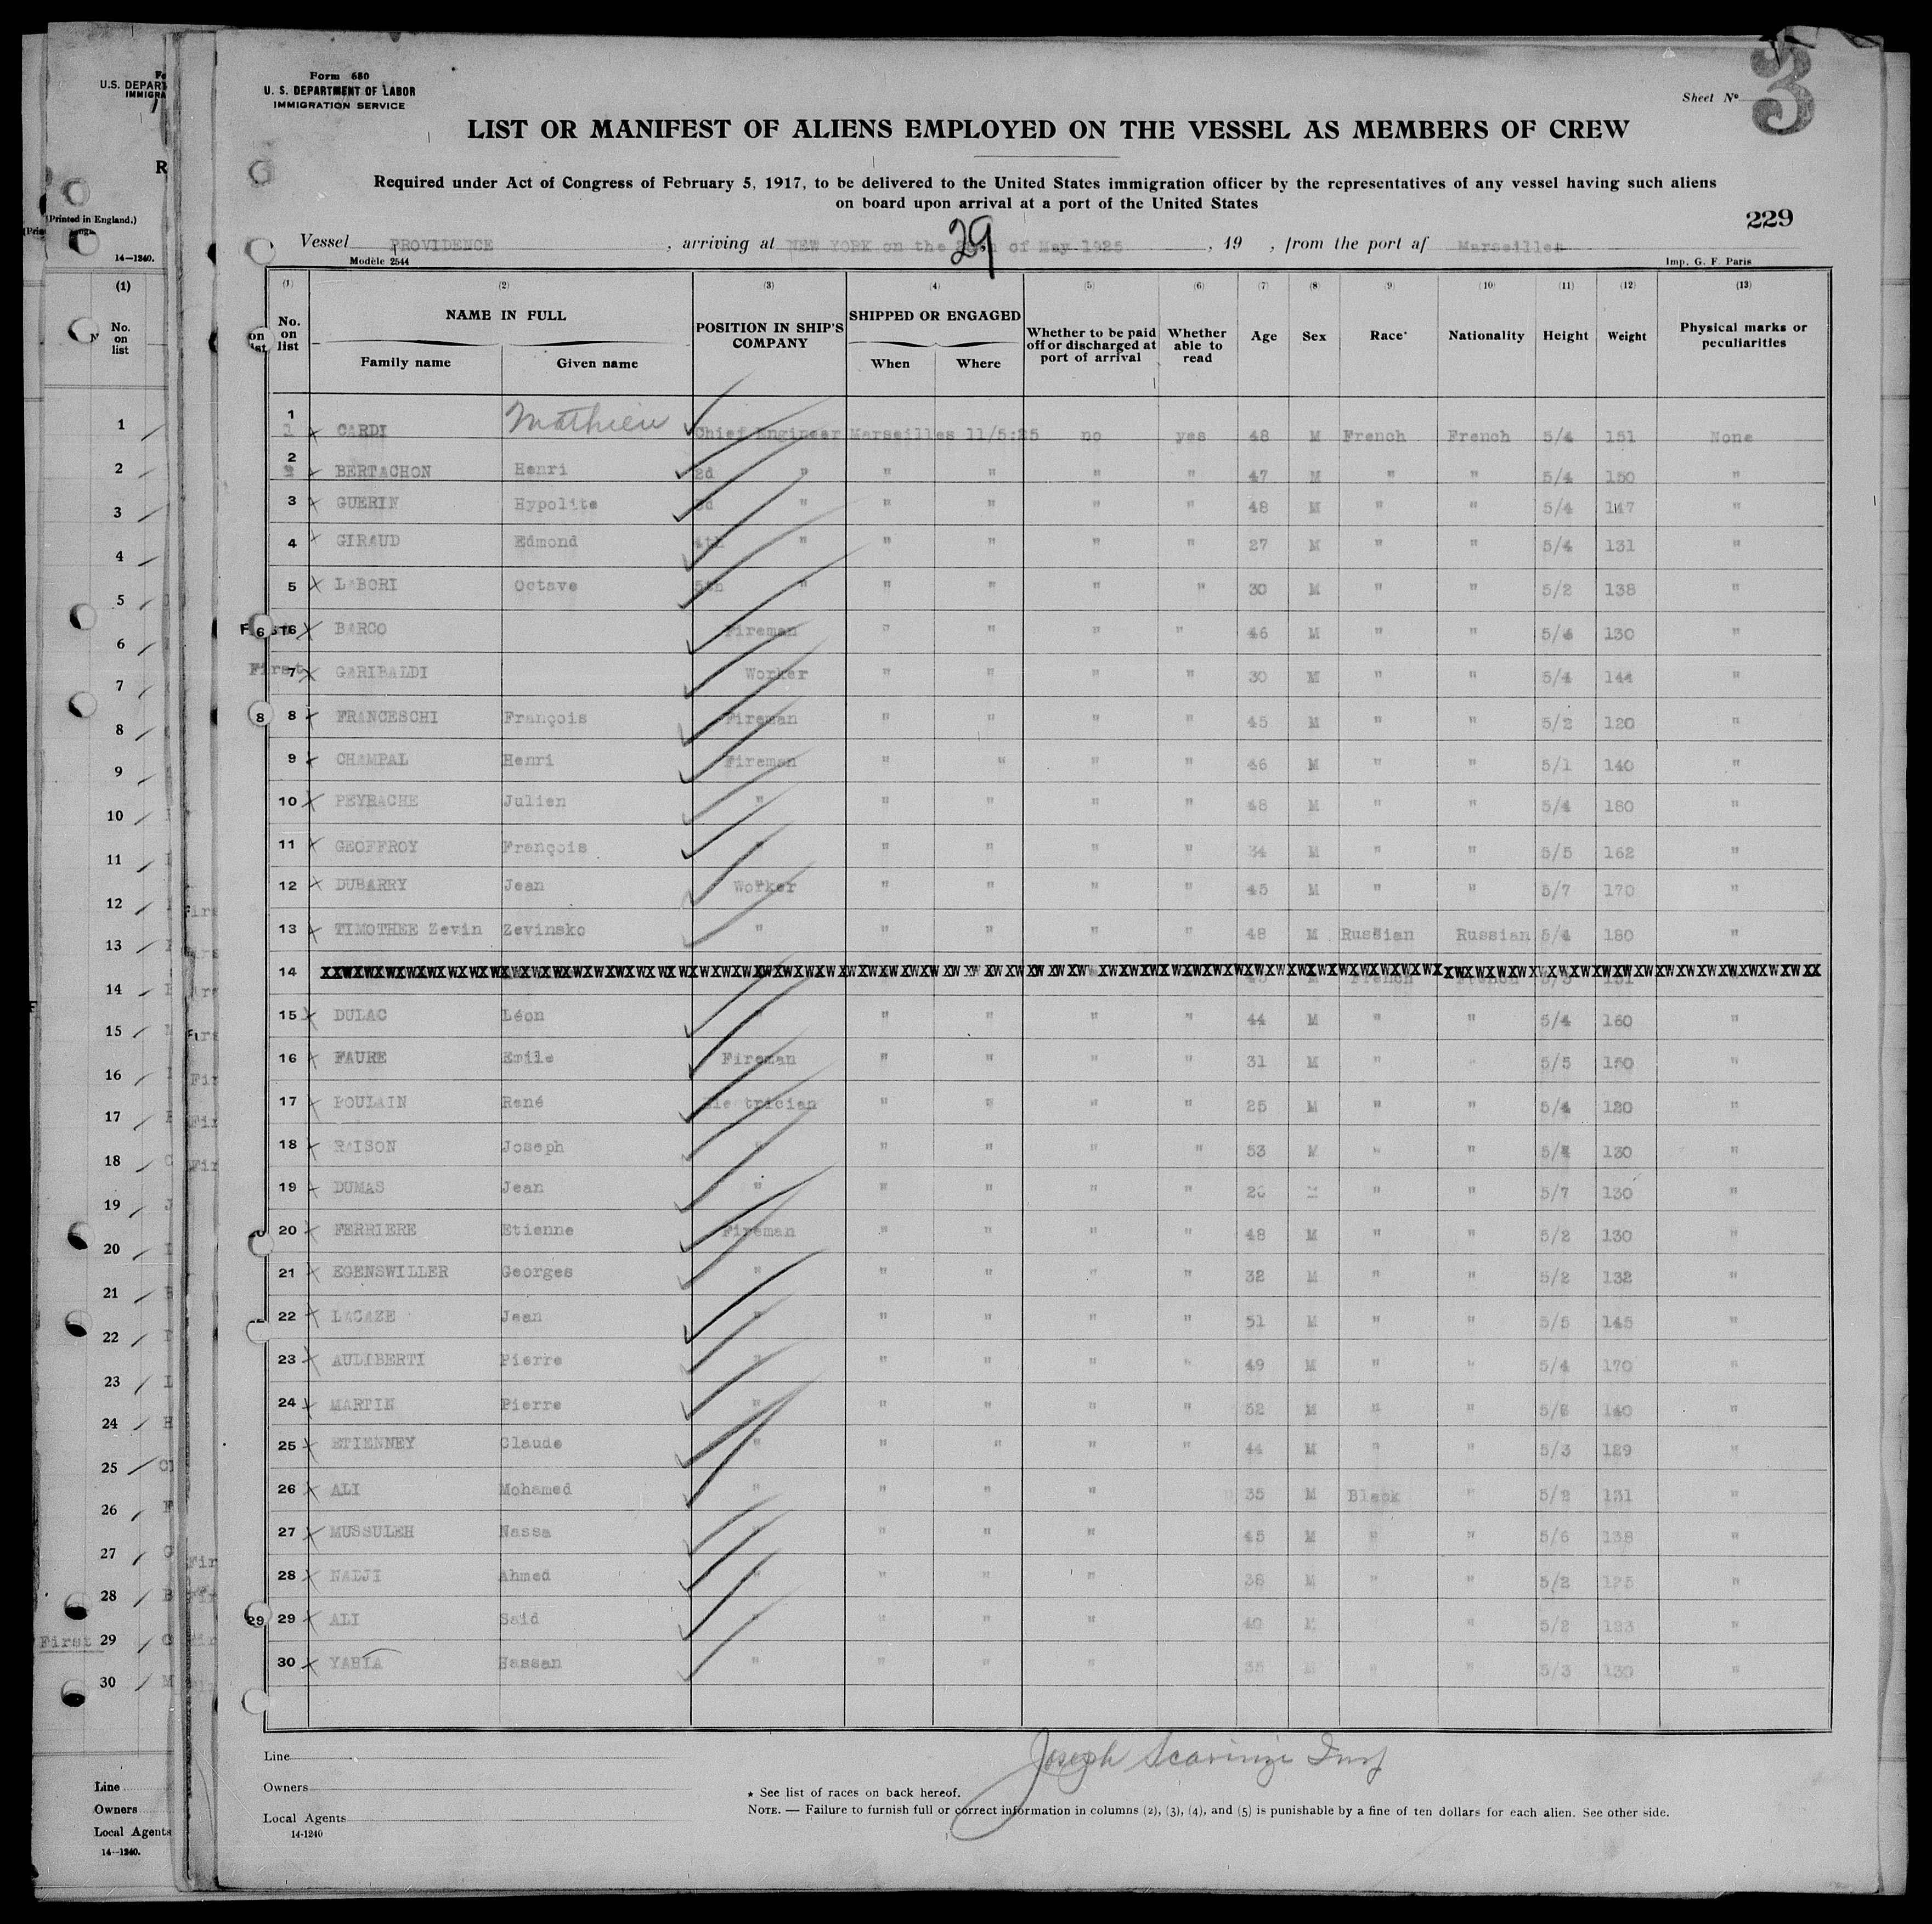 Form 680
U. S. DEPARTMENT OF LABOR
IMMIGRATION SERVICE
Sheet No
3
LIST OR MANIFEST OF ALIENS EMPLOYED ON THE VESSEL AS MEMBERS OF CREW
Required under Act of Congress of February 5, 1917, to be delivered to the United States immigration officer by the representatives of any vessel having such aliens
on board upon arrival at a port of the United States
229
Vessel PROVIDENCE , arriving at NEW YORK on the 29 of May 1925 , 19 , from the port af Marseilles
Modèle 2544
Imp. G. F. Paris
(1) (2) (3) (4) (5) (6) (7) (8) (9) (10) (11) (12) (13)
No. on list NAME IN FULL Family name Given name POSITION IN SHIP'S COMPANY SHIPPED OR ENGAGED When Where Whether to be paid off or discharged at port of arrival Whether able to read Age Sex Race* Nationality Height Weight Physical marks or peculiarities
1 CARDI Mathieu Chief Engineer Marseilles 11/5:25 no yes 48 M French French 5/4 151 None
2 BERTACHON Henri 2d " " " " " 47 M " " 5/4 150 "
3 GUERIN Hypolite 3d " " " " " 48 M " " 5/4 147 "
4 GIRAUD Edmond 4th " " " " " 27 M " " 5/4 131 "
5 LABORI Octave 5th " " " " " 30 M " " 5/2 138 "
6 BARCO Fireman " " " " 46 M " " 130 "
First 7 GARIBALDI Worker " " " " 30 M " " 5/4 144 "
8 FRANCESCHI François Fireman " " " " 45 M " " 5/2 120 "
9 CHAMPAL Henri Fireman " " " " 46 M " " 5/1 140 "
10 PEYRACHE Julien " " " " " 48 M " " 5/4 180 "
11 GEOFFROY François " " " " " 34 M " " 5/5 162 "
12 DUBARRY Jean Worker " " " " 45 M " " 5/7 170 "
13 TIMOTHEE Zevin Zevinsko " " " " " 48 M Russian Russian 5/4 180 "
14
15 DULAC Léon " " " " " 44 M " " 5/4 160 "
16 FAURE Emile Fireman " " " " 31 M " " 5/5 150 "
17 POULAIN René Electrician " " " " 25 M " " 5/4 120 "
18 RAISON Joseph " " " " " 53 M " " 130 "
19 DUMAS Jean " " " " " M " " 5/7 130 "
20 FERRIERE Etienne Fireman " " " " 48 M " " 5/2 130 "
21 EGENSWILLER Georges " " " " " 32 M " " 5/2 132 "
22 LACAZE Jean " " " " " 51 M " " 5/5 145 "
23 AULIBERTI Pierre " " " " " 49 M " " 5/4 170 "
24 MARTIN Pierre " " " " " 32 M " " 140 "
25 ETIENNEY Claude " " " " " 44 M " " 5/3 129 "
26 ALI Mohamed " " " " 35 M Black " 5/2 131 "
27 MUSSULEH Nassa " " " " 45 M " " 5/6 138 "
28 NADJI Ahmed " " " " 38 M " " 5/2 125 "
29 ALI Said " " " " 40 M " 5/2 123 "
30 YAHIA Hassan " " " " 35 M " " 5/3 130 "
Line
Owners
Local Agents
14-1240
Joseph Scarinzi Insp
* See list of races on back hereof.
NOTE. — Failure to furnish full or correct information in columns (2), (3), (4), and (5) is punishable by a fine of ten dollars for each alien. See other side.